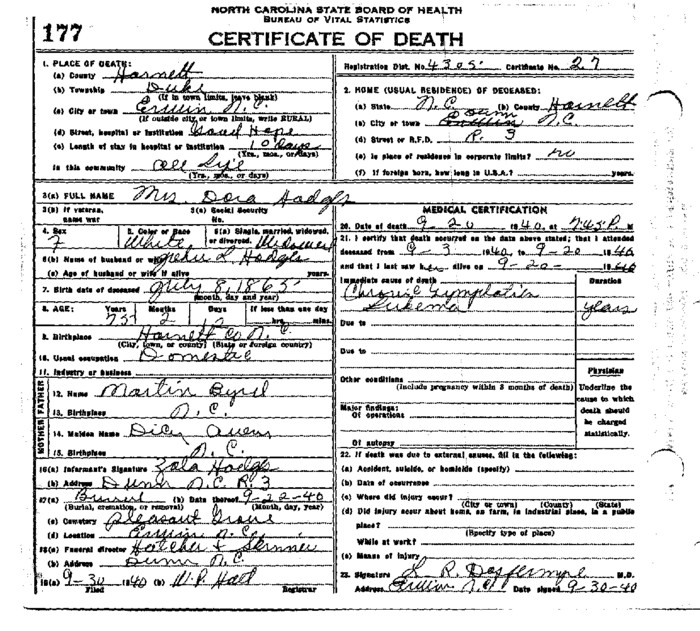 NORTH CAROLINA STATE BOARD OF HEALTH
BUREAU OF VITAL STATISTICS
177
CERTIFICATE OF DEATH
Registration Dist. No. 4305 Certificate No. 27
1. PLACE OF DEATH:
(a) County Harnett
(b) Township Duke
(If in town limits, leave blank)
(c) City or town Erwin N.C.
(If outside city or town limits, write RURAL)
(d) Street, hospital or institution Good Hope
(e) Length of stay in hospital or institution 10 days
(Yrs., mos., or days)
In this community all life
(Yrs., mos., or days)
2. HOME (USUAL RESIDENCE) OF DECEASED:
(a) State N.C. (b) County Harnett
(c) City or town Dunn N.C.
(d) Street or R.F.D. R. 3
(e) Is place of residence in corporate limits? no
(f) If foreign born, how long in U.S.A.? years.
3(a) FULL NAME Mrs. Dora Hodges
3(b) If veteran, name war
3(c) Social Security No.
4. Sex F
5. Color or Race White
6(a) Single, married, widowed, or divorced. Widowed
6(b) Name of husband or wife L. Hodges
(c) Age of husband or wife if alive years.
7. Birth date of deceased July 8, 1865
(month, day and year)
8. AGE: Years Months Days If less than one day
75 2 12 hrs. mins.
9. Birthplace Harnett Co N.C.
(City, town, or county) (State or foreign country)
10. Usual occupation Domestic
11. Industry or business
FATHER
12. Name Martin Byrd
13. Birthplace N.C.
MOTHER
14. Maiden Name Dicy Avery
15. Birthplace N.C.
16(a) Informant's Signature Zola Hodges
(b) Address Dunn N.C. R 3
17(a) Burial (b) Date thereof 9-22-40
(Burial, cremation, or removal) (Month, day, year)
(c) Cemetery Pleasant Grove
(d) Location Erwin N.C.
18(a) Funeral director Hatcher & Skinner
(b) Address Dunn N.C.
19(a) 9-30 1940 (b) W.P. Holt
Filed Registrar
MEDICAL CERTIFICATION
20. Date of death 9-20 1940, at 7:45 P. M
21. I certify that death occurred on the date above stated; that I attended
deceased from 9-3 1940 to 9-20 1940
and that I last saw her alive on 9-20- 1940
Immediate cause of death Duration
Chronic Lymphatic
Lukemia years
Due to
Due to
Other conditions
(Include pregnancy within 3 months of death)
Major findings:
Of operations
Of autopsy
Physician
Underline the
cause to which
death should
be charged
statistically.
22. If death was due to external causes, fill in the following:
(a) Accident, suicide, or homicide (specify)
(b) Date of occurrence
(c) Where did injury occur?
(City or town) (County) (State)
(d) Did injury occur about home, on farm, in industrial place, in a public
place?
(Specify type of place)
While at work?
(e) Means of injury
23. Signature L R Doffermyre M.D.
Address Erwin N.C. Date signed 9-30-40